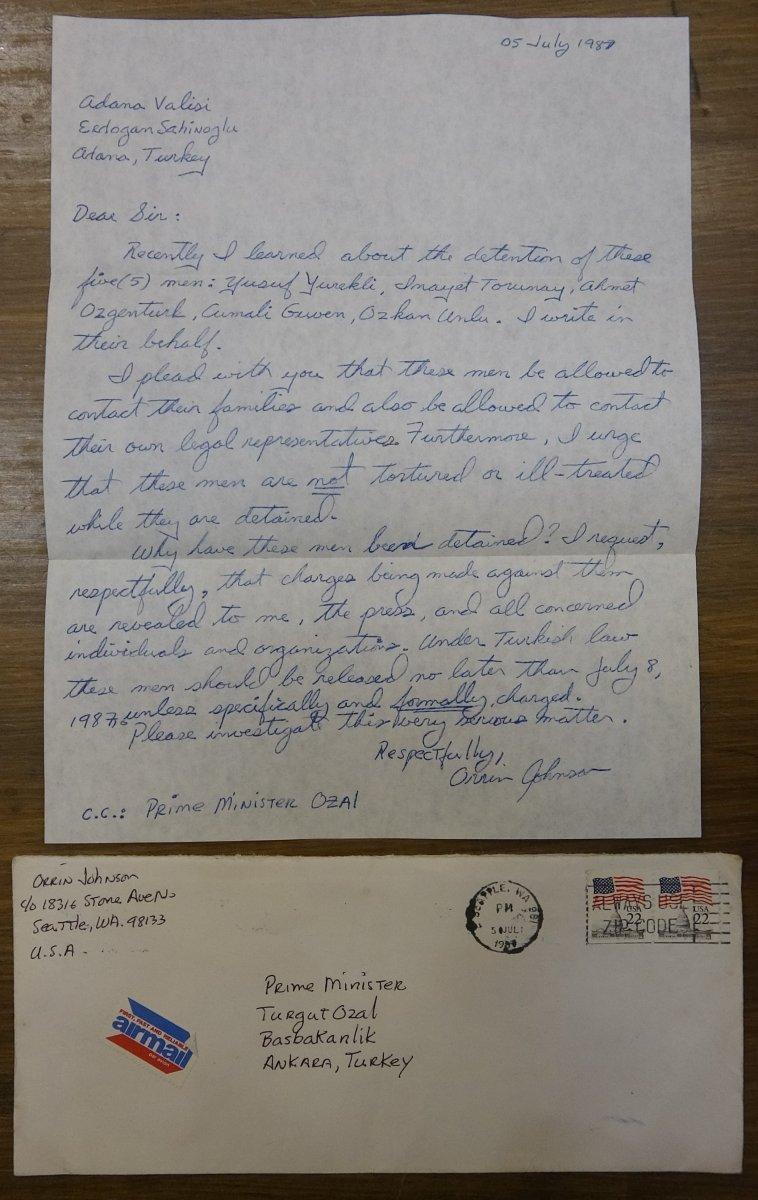 05 July 1987
Adana Valisi
Erdogan Sahinoglu
Adana, Turkey
Dear Sir:
Recently I learned about the detention of these
five(5) men: Yusuf Yurekli, Inayet Torunay, Ahmet
Ozgenturk, Cumali Guven, Ozkan Unlu. I write in
their behalf.
I plead with you that these men be allowed to
contact their families and also be allowed to contact
their own legal representatives. Furthermore, I urge
that these men are not tortured or ill-treated
while they are detained.
Why have these men been detained? I request,
respectfully, that charges being made against them
are revealed to me, the press, and all concerned
individuals and organizations. Under Turkish law
these men should be released no later than July 8,
1987, unless specifically and formally charged.
Please investigate this very serious matter.
Respectfully,
Orrin Johnson
C.C.: PRIME MINISTER OZAL
ORRIN JOHNSON
c/o 18316 STONE AVE No
Seattle, WA. 98133
U.S.A.
SEATTLE, WA 981
PM
5 JUL
1987
ALWAYS USE
ZIP CODE
USA
22
USA
22
FIRST, FAST AND RELIABLE
airmail
PAR AVION
PRIME MINISTER
TURGUT OZAL
BASBAKANLIK
ANKARA, TURKEY